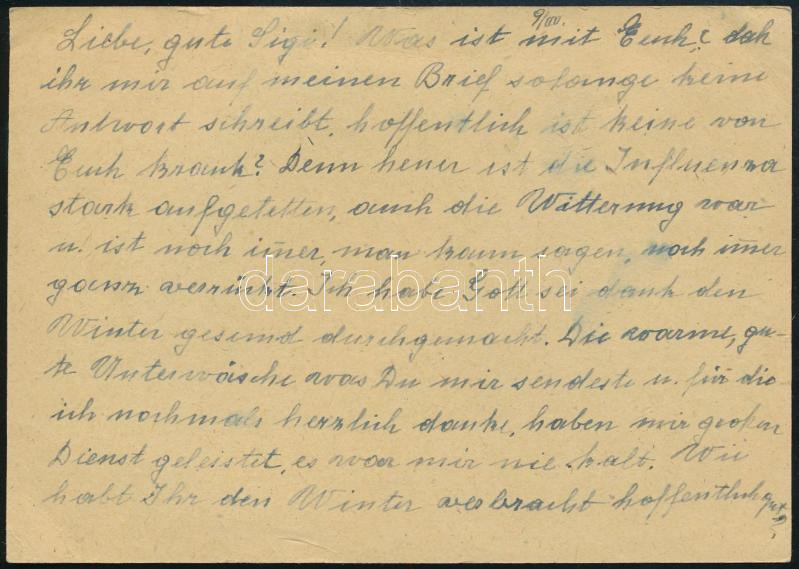 9/III.
Liebe, gute Sigi! Was ist mit Euch? dah
ihr mir auf meinen Brief solange keine
Antwort schreibt, hoffentlich ist keine von
Euch krank? Denn heuer ist die Influenza
stark aufgetetten, auch die Witterung war
u. ist noch im̅er, man kann sagen, noch im̅er
ganz verrückt. Ich habe Gott sei dank den
Winter gesund durchgemacht. Die warme, gu-
te Unterwäsche was Du mir sendeste u. für die
ich nochmals herzlich danke, haben mir großen
Dienst geleistet, es war mir nie kalt. Wie
habt Ihr den Winter verbracht hoffentlich gut?
darabanth.com